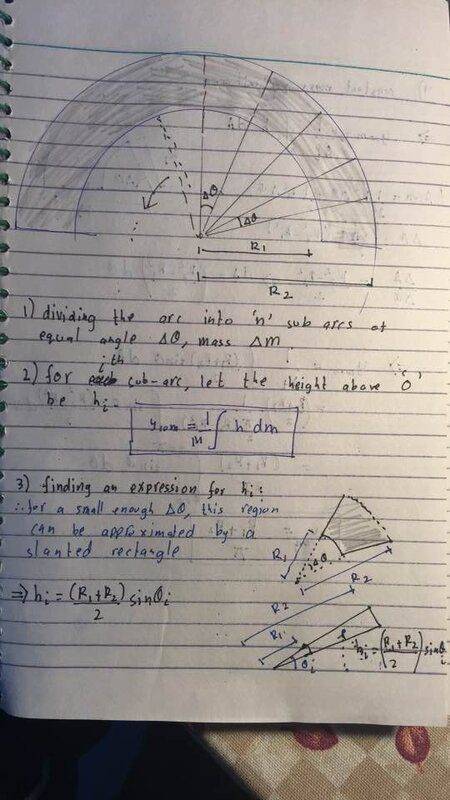 Δθ
Δθ
R1
R2
1) dividing the arc into 'n' sub arcs of
equal angle Δθ, mass Δm.
ith
2) for sub-arc, let the height above 'O'
be hi.
ycom = 1/M ∫ h dm
3) finding an expression for hi:
∴ for a small enough Δθ, this region
can be approximated by a
slanted rectangle
R1
Δθ
R2
⇒ hi = (R1+R2)/2 sinθi
R2
R1
θi
hi = (R1+R2)/2 sinθi